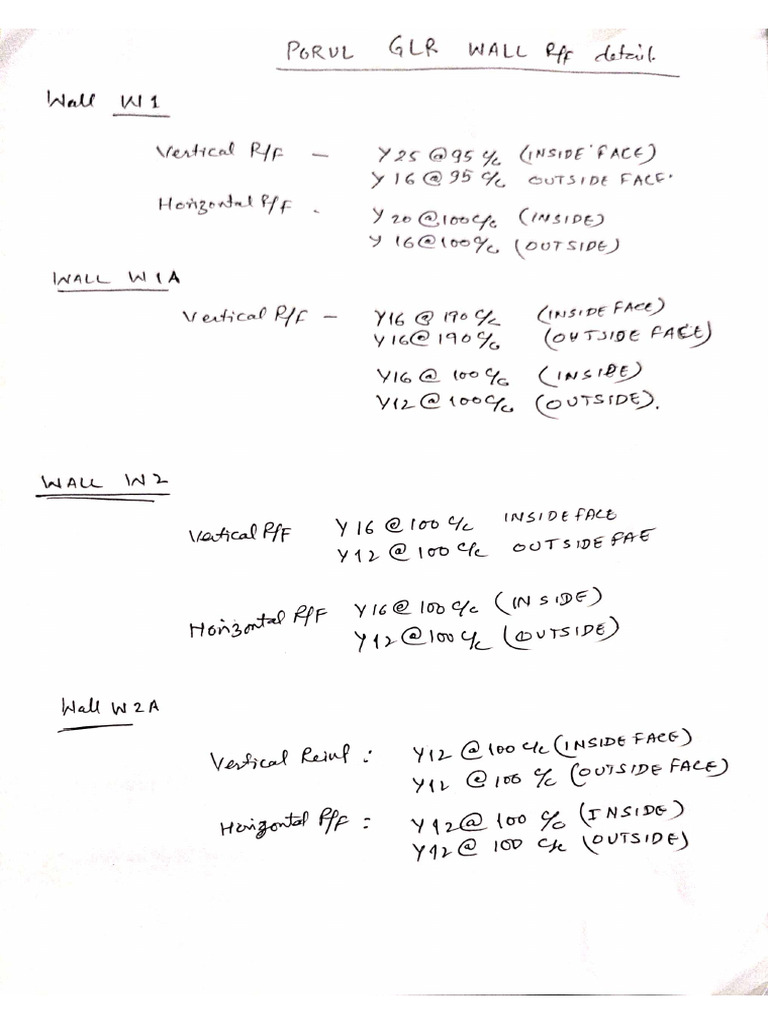 PORUL GLR WALL R/F detail.
Wall W1
Vertical R/F — Y25 @ 95 c/c (INSIDE FACE)
Y16 @ 95 c/c OUTSIDE FACE.
Horizontal R/F - Y20 @ 100 c/c (INSIDE)
Y 16 @ 100 c/c (OUTSIDE)
WALL W1A
Vertical R/F — Y16 @ 190 c/c (INSIDE FACE)
Y16 @ 190 c/c (OUTSIDE FACE)
Y16 @ 100 c/c (INSIDE)
Y12 @ 100 c/c (OUTSIDE).
WALL W2
Vertical R/F Y16 @ 100 c/c INSIDE FACE
Y12 @ 100 c/c OUTSIDE FAE
Horizontal R/F Y16 @ 100 c/c (INSIDE)
Y12 @ 100 c/c (OUTSIDE)
Wall W2A
Vertical Reinf : Y12 @ 100 c/c (INSIDE FACE)
Y12 @ 100 c/c (OUTSIDE FACE)
Horizontal R/F : Y12 @ 100 c/c (INSIDE)
Y12 @ 100 c/c (OUTSIDE)